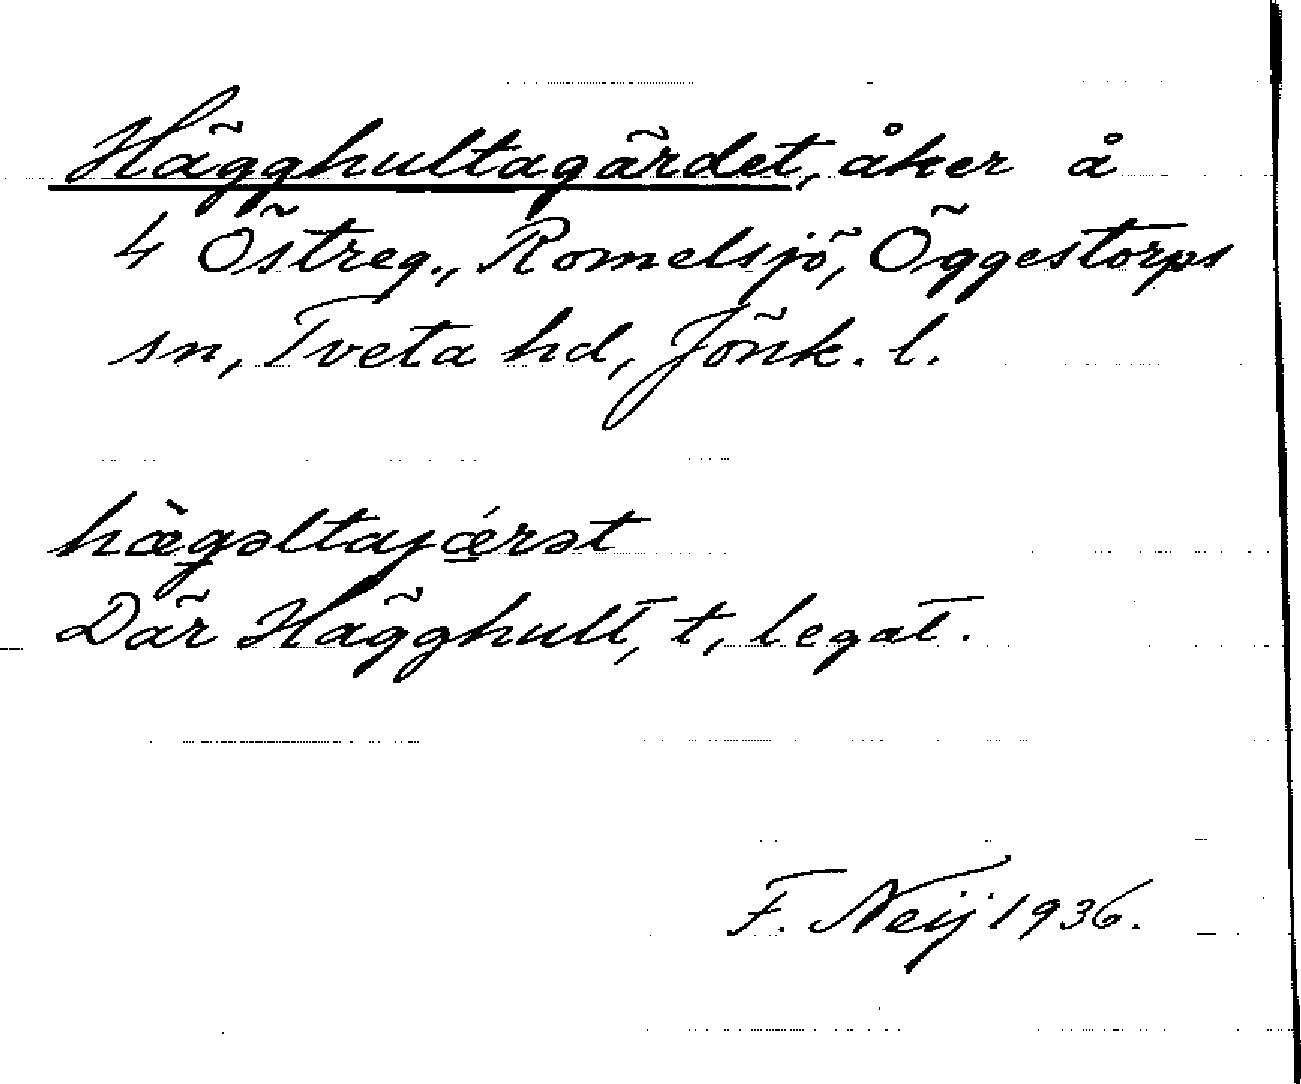 Hägghultagärdet, åker å
4 Östreg., Romelsjö, Öggestorps
sn, Tveta hd, Jönk. l.
hæ̀gəltajǽrət
Där Hägghult, t, legat.
F. Neij 1936.